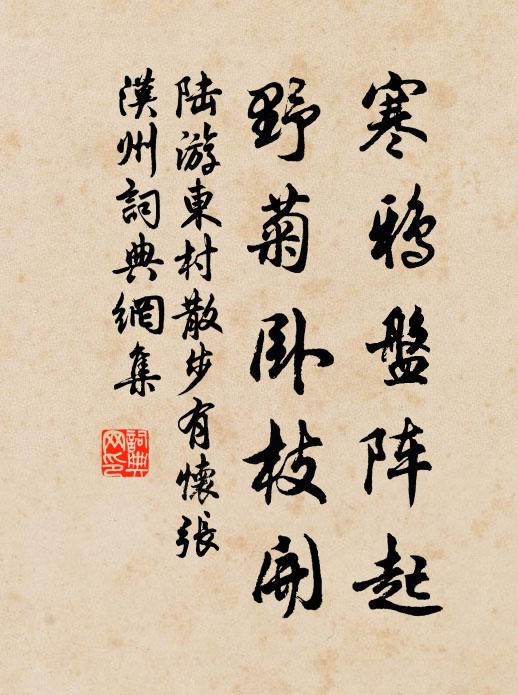 寒鸦盤阵起
野菊卧枝開
陆游東村散步有懷張
漢州詞典網集
詞典网印